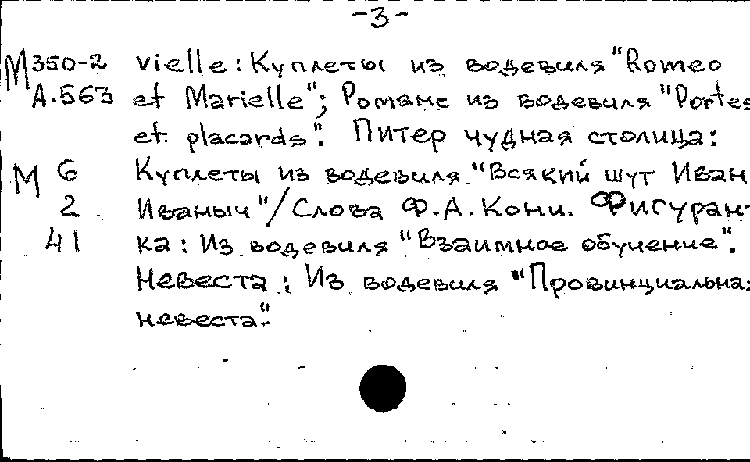 -3-
М 350-2 vielle: Куплеты из водевиля "Romeo
А.563 et Marielle"; Романс из водевиля "Portes
et placards". Питер чудная столица:
М 6 Куплеты из водевиля "Всякий шут Иван
2 Иваныч"/Слова Ф.А.Кони. Фигурант-
41 ка: Из водевиля "Взаимное обучение".
Невеста: Из водевиля "Провинциальная
невеста".